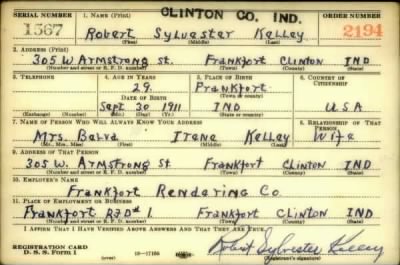 CLINTON CO. IND.
SERIAL NUMBER 1. NAME (Print) ORDER NUMBER
1567 Robert Sylvester Kelley 2194
(First) (Middle) (Last)
2. ADDRESS (Print)
305 W Armstrong St. Frankfort Clinton IND
(Number and street or R. F. D. number) (Town) (County) (State)
3. TELEPHONE 4. AGE IN YEARS 5. PLACE OF BIRTH 6. COUNTRY OF CITIZENSHIP
29 Frankfort
DATE OF BIRTH (Town or county)
Sept 30 1911 IND USA
(Exchange) (Number) (Mo.) (Day) (Yr.) (State or country)
7. NAME OF PERSON WHO WILL ALWAYS KNOW YOUR ADDRESS 8. RELATIONSHIP OF THAT PERSON
Mrs. Belva Irene Kelley Wife
(Mr., Mrs., Miss) (First) (Middle) (Last)
9. ADDRESS OF THAT PERSON
305 W. Armstrong St Frankfort Clinton IND
(Number and street or R. F. D. number) (Town) (County) (State)
10. EMPLOYER'S NAME
Frankfort Rendering Co.
11. PLACE OF EMPLOYMENT OR BUSINESS
Frankfort RFD #1. Frankfort Clinton IND
(Number and street or R. F. D. number) (Town) (County) (State)
I AFFIRM THAT I HAVE VERIFIED ABOVE ANSWERS AND THAT THEY ARE TRUE.
REGISTRATION CARD
D. S. S. Form 1 (over) 16—17105 Robert Sylvester Kelley
(Registrant's signature)